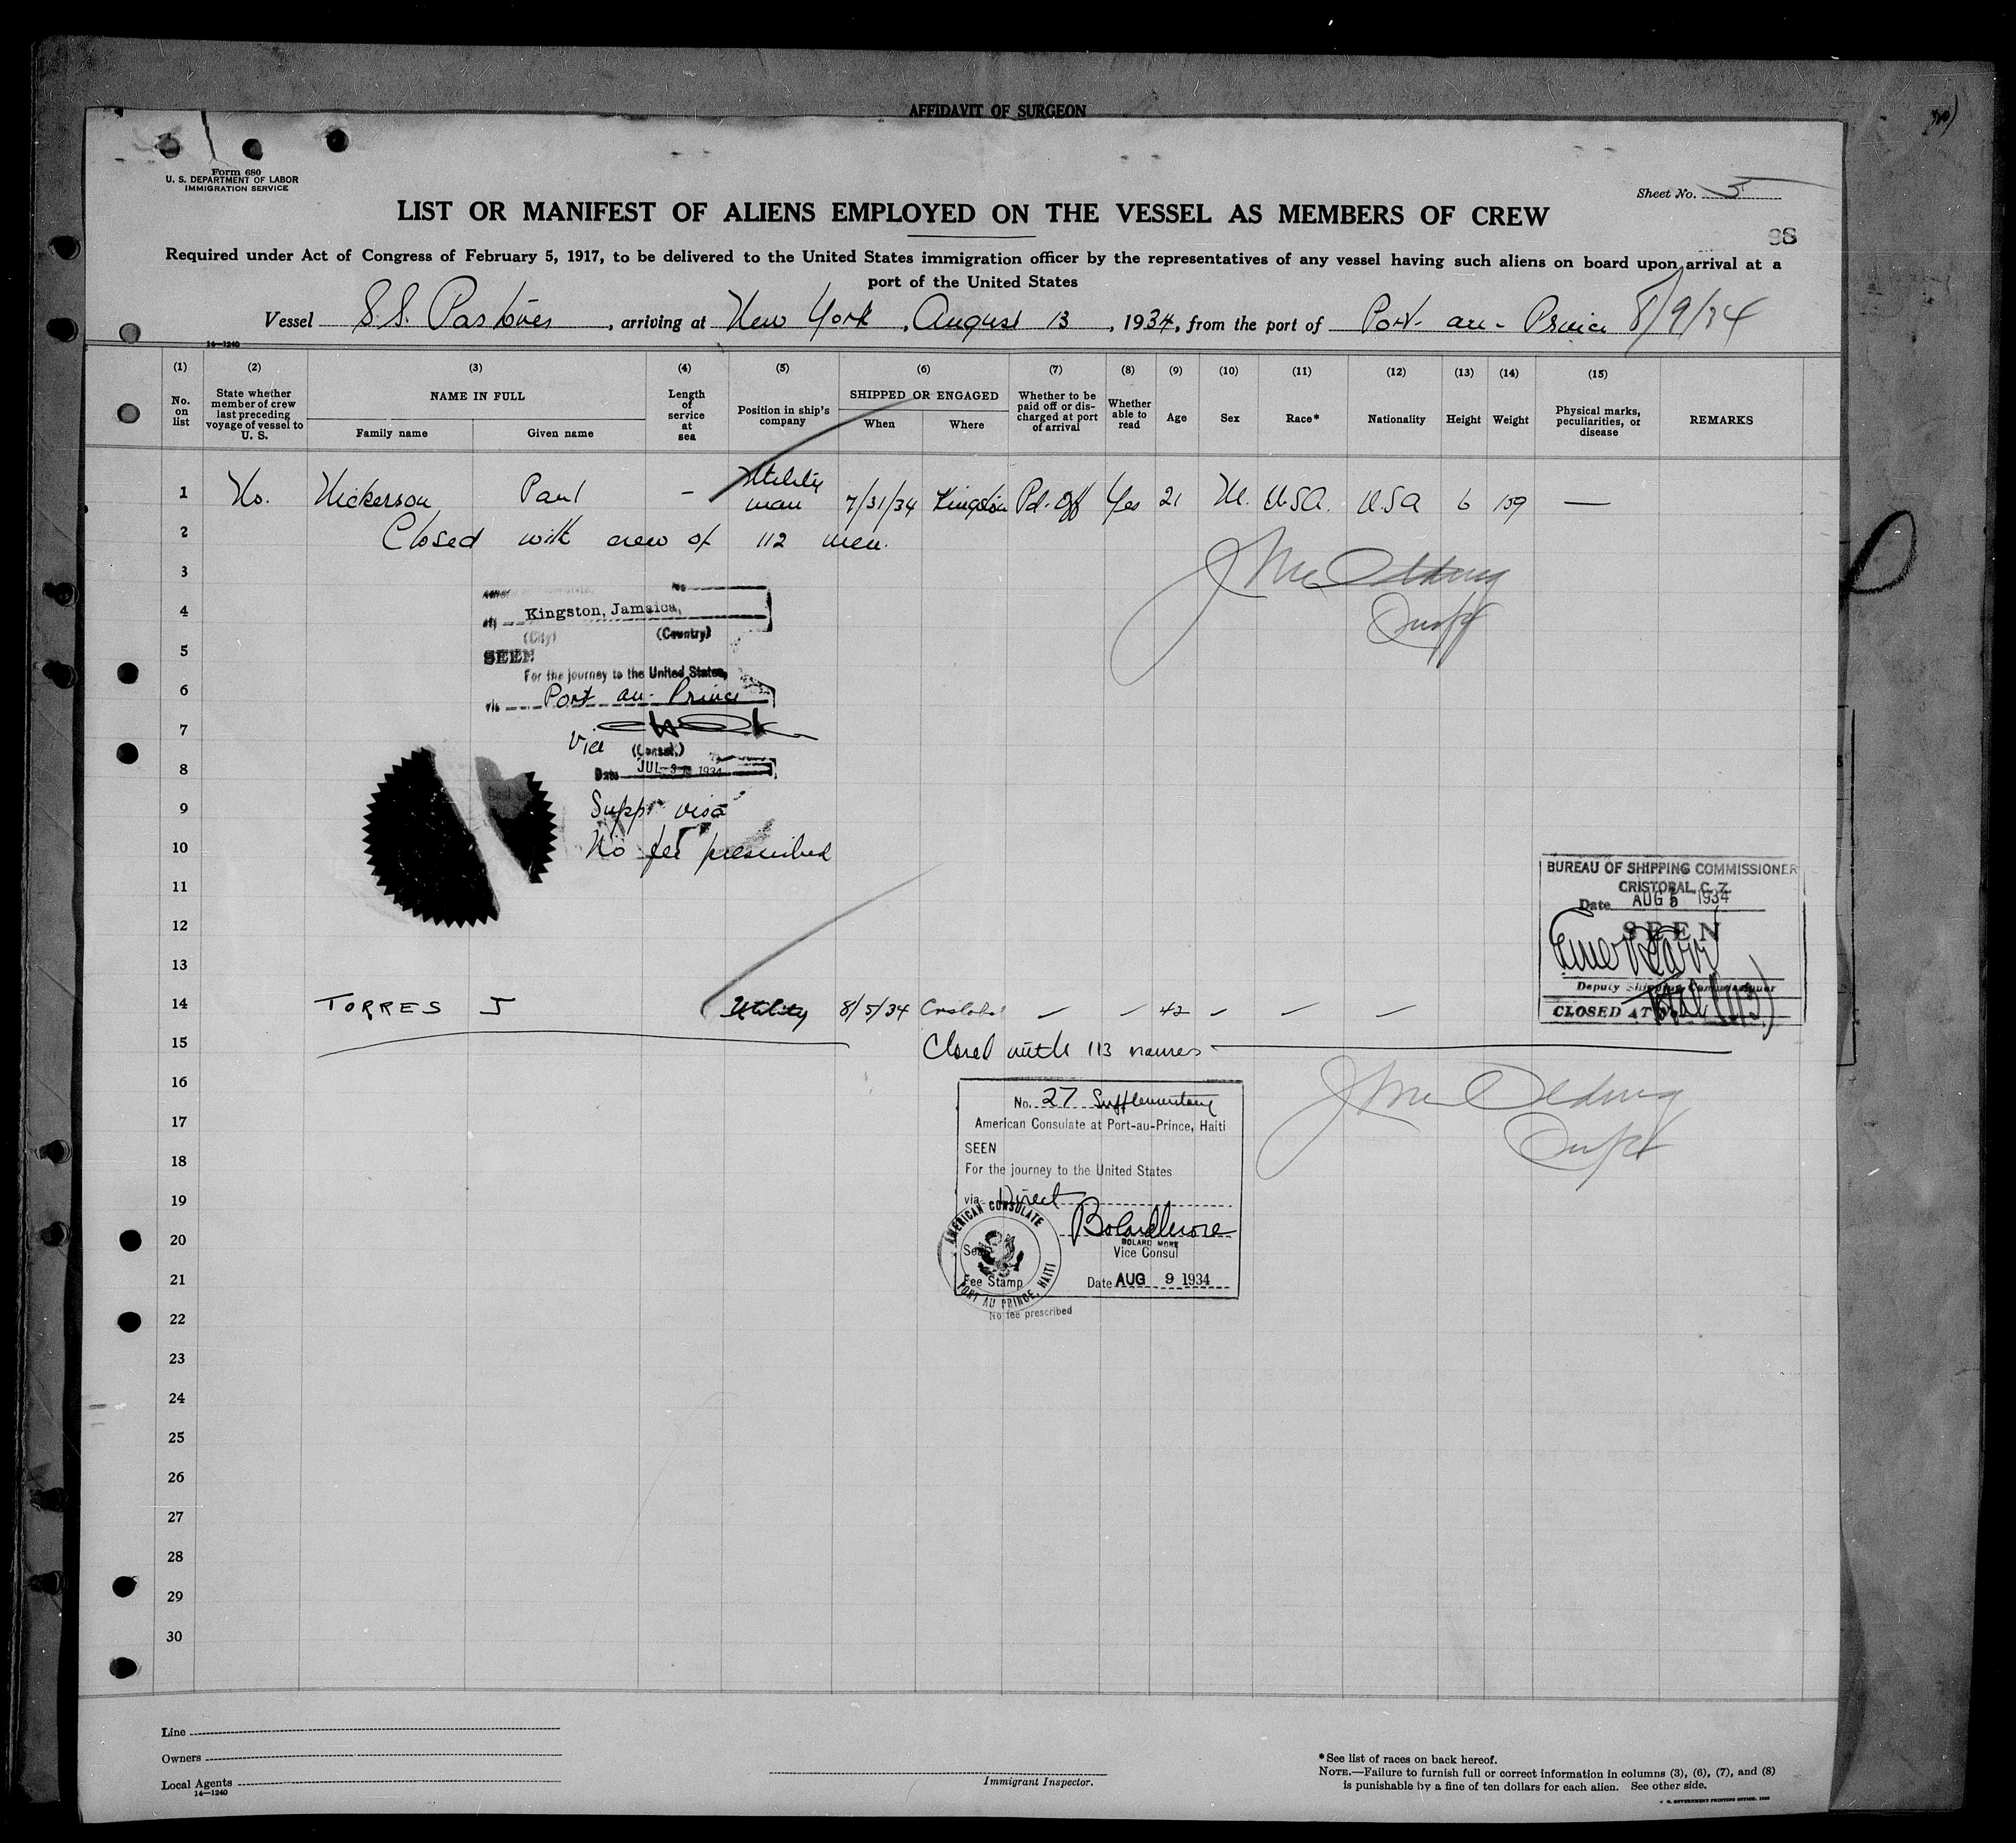 AFFIDAVIT OF SURGEON
Form 680
U. S. DEPARTMENT OF LABOR
IMMIGRATION SERVICE
Sheet No. 5
LIST OR MANIFEST OF ALIENS EMPLOYED ON THE VESSEL AS MEMBERS OF CREW
98
Required under Act of Congress of February 5, 1917, to be delivered to the United States immigration officer by the representatives of any vessel having such aliens on board upon arrival at a
port of the United States
Vessel S.S. Pastores, arriving at New York, August 13, 1934, from the port of Port-au-Prince 8/9/34
14—1240
(1) (2) (3) (4) (5) (6) (7) (8) (9) (10) (11) (12) (13) (14) (15)
No. on list
State whether member of crew last preceding voyage of vessel to U. S.
NAME IN FULL
Family name
Given name
Length of service at sea
Position in ship's company
SHIPPED OR ENGAGED
When
Where
Whether to be paid off or discharged at port of arrival
Whether able to read
Age
Sex
Race*
Nationality
Height
Weight
Physical marks, peculiarities, or disease
REMARKS
1 No. Nickerson Paul - Utility man 7/31/34 Kingston Pd. Off Yes 21 M. USA. USA 6 159 —
2 Closed with crew of 112 men.
3
4 Kingston, Jamaica,
(City) (Country)
5 SEEN
For the journey to the United States,
6 via Port au-Prince
7
Vice (Consul.)
8 Date JUL 1934
9 Suppl visa
10 No fee prescribed
11
12
13
BUREAU OF SHIPPING COMMISSIONER
CRISTOBAL, C. Z.
Date AUG 5 1934
SEEN
Deputy Shipping Commissioner
CLOSED AT No.
14 TORRES J Utility 8/5/34 Cristobal — — 42 — — —
15 Closed with 113 names
16
17
18
19
20
21
22
23
24
25
26
27
28
29
30
No. 27 Supplementary
American Consulate at Port-au-Prince, Haiti
SEEN
For the journey to the United States
via Direct
Bolard More
BOLARD MORE
Vice Consul
Date AUG 9 1934
AMERICAN CONSULATE
PORT AU PRINCE, HAITI
Seal
Fee Stamp
No fee prescribed
Line
Owners
Local Agents
14—1240
Immigrant Inspector.
*See list of races on back hereof.
NOTE.—Failure to furnish full or correct information in columns (3), (6), (7), and (8)
is punishable by a fine of ten dollars for each alien. See other side.